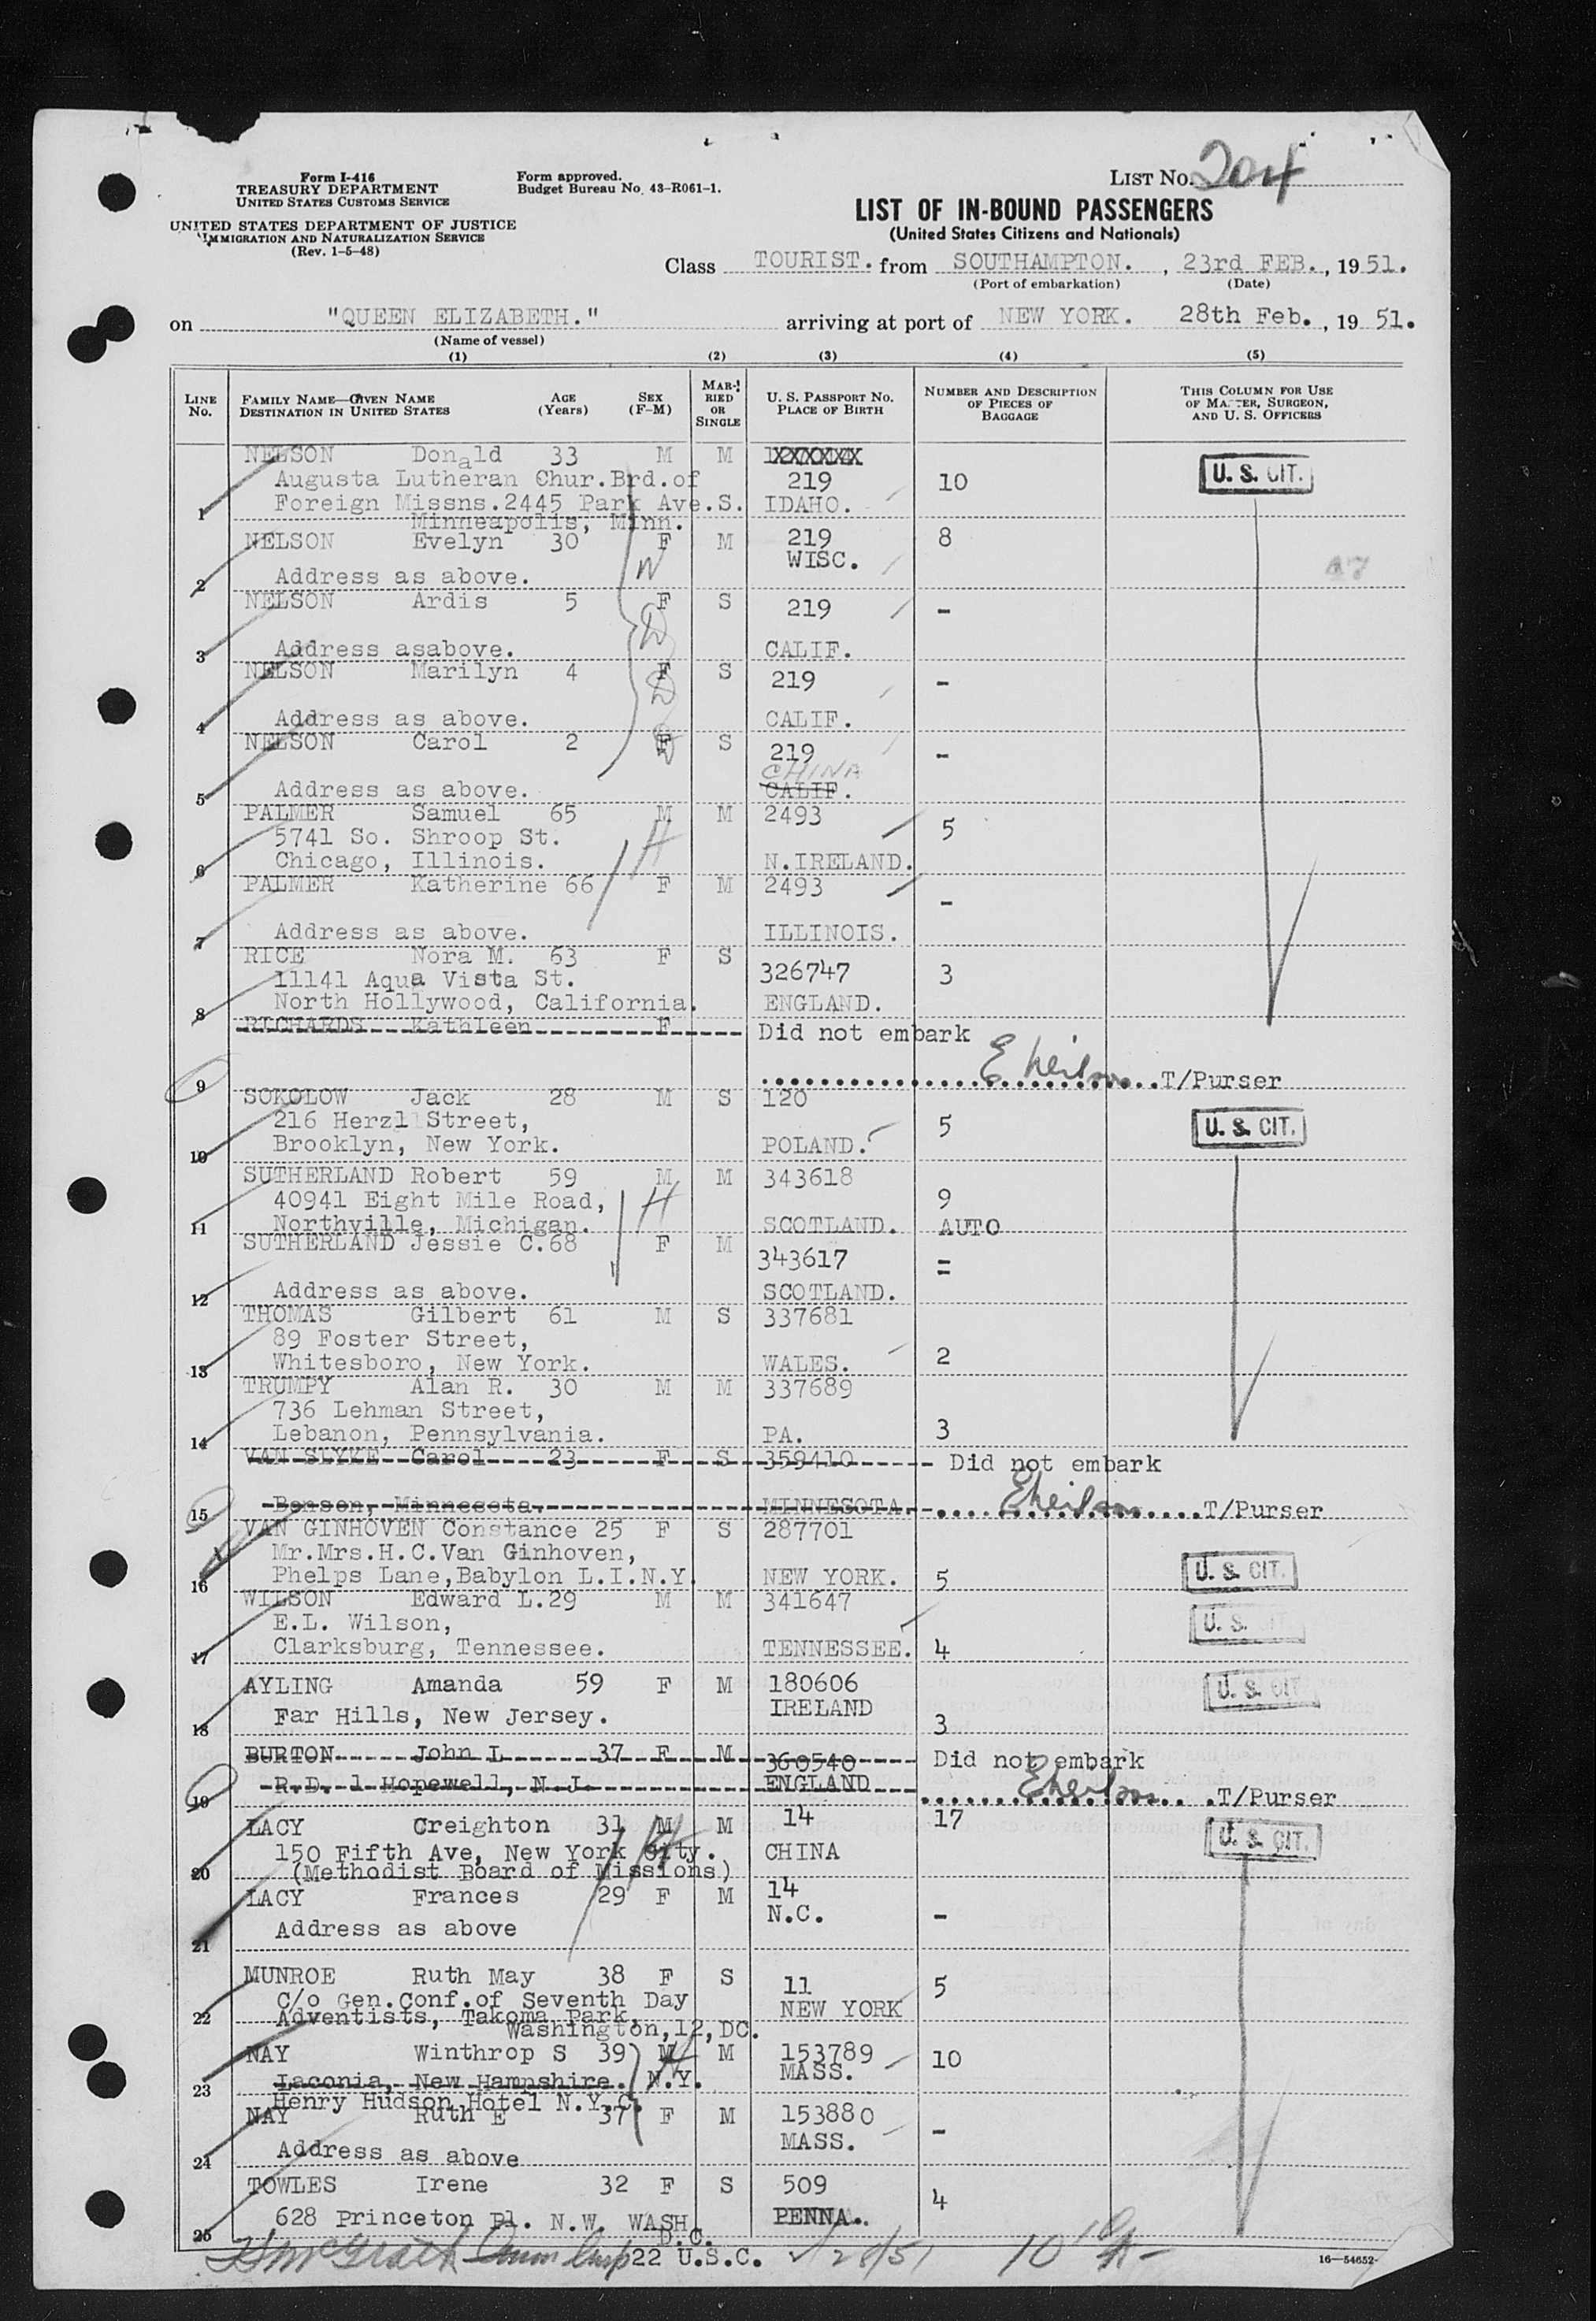 Form I-416
TREASURY DEPARTMENT
UNITED STATES CUSTOMS SERVICE
UNITED STATES DEPARTMENT OF JUSTICE
IMMIGRATION AND NATURALIZATION SERVICE
(Rev. 1-5-48)
Form approved.
Budget Bureau No. 43-R061-1.
LIST NO. 204
LIST OF IN-BOUND PASSENGERS
(United States Citizens and Nationals)
Class TOURIST. from SOUTHAMPTON. , 23rd FEB. , 1951.
(Port of embarkation) (Date)
on "QUEEN ELIZABETH." arriving at port of NEW YORK. 28th Feb. , 1951.
(Name of vessel)
(1) (2) (3) (4) (5)
LINE No.
FAMILY NAME—GIVEN NAME AGE (Years) SEX (F-M)
DESTINATION IN UNITED STATES
MARRIED OR SINGLE
U. S. PASSPORT NO.
PLACE OF BIRTH
NUMBER AND DESCRIPTION OF PIECES OF BAGGAGE
THIS COLUMN FOR USE OF MASTER, SURGEON, AND U. S. OFFICERS
NELSON Donald 33 M M
Augusta Lutheran Chur.Brd.of 219 10 U. S. CIT.
1 Foreign Missns.2445 Park Ave.S. IDAHO.
Minneapolis, Minn.
NELSON Evelyn 30 F M 219 8
W WISC.
2 Address as above. 47
NELSON Ardis 5 F S 219 -
D
3 Address asabove. CALIF.
NELSON Marilyn 4 F S 219 -
D
4 Address as above. CALIF.
NELSON Carol 2 F S 219 -
D CHINA
5 Address as above. CALIF.
PALMER Samuel 65 M M 2493 5
5741 So. Shroop St. H
6 Chicago, Illinois. N.IRELAND.
PALMER Katherine 66 F M 2493 -
7 Address as above. ILLINOIS.
RICE Nora M. 63 F S 326747 3
11141 Aqua Vista St.
8 North Hollywood, California. ENGLAND.
RICHARDS Kathleen F Did not embark
9 E Neilson T/Purser
SOKOLOW Jack 28 M S 120
216 Herzl Street, 5 U. S. CIT.
10 Brooklyn, New York. POLAND.
SUTHERLAND Robert 59 M M 343618
40941 Eight Mile Road, H 9
11 Northville, Michigan. SCOTLAND. AUTO
SUTHERLAND Jessie C.68 F M 343617 =
12 Address as above. SCOTLAND.
THOMAS Gilbert 61 M S 337681
89 Foster Street,
13 Whitesboro, New York. WALES. 2
TRUMPY Alan R. 30 M M 337689
736 Lehman Street,
14 Lebanon, Pennsylvania. PA. 3
VAN SLYKE Carol 23 F S 359410 Did not embark
15 Benson, Minnesota. MINNESOTA. E Neilson T/Purser
VAN GINHOVEN Constance 25 F S 287701
Mr.Mrs.H.C.Van Ginhoven,
16 Phelps Lane,Babylon L.I.N.Y. NEW YORK. 5 U. S. CIT.
WILSON Edward L.29 M M 341647
E.L. Wilson, U. S.
17 Clarksburg, Tennessee. TENNESSEE. 4
AYLING Amanda 59 F M 180606 U. S. CIT
18 Far Hills, New Jersey. IRELAND 3
BURTON John L 37 F M 360540 Did not embark
19 R.D. 1 Hopewell, N.J. ENGLAND E Neilson T/Purser
LACY Creighton 31 M M 14 17
150 Fifth Ave, New York City. H CHINA U. S. CIT.
20 (Methodist Board of Missions)
LACY Frances 29 F M 14
N.C. -
21 Address as above
MUNROE Ruth May 38 F S 11 5
C/o Gen.Conf.of Seventh Day NEW YORK
22 Adventists, Takoma Park,
Washington,12,DC.
NAY Winthrop S 39 M M 153789 10
H MASS.
23 Laconia, New Hampshire. N.Y.
Henry Hudson Hotel N.Y.C.
NAY Ruth E 37 F M 153880
MASS. -
24 Address as above
TOWLES Irene 32 F S 509 4
25 628 Princeton Pl. N.W. WASH PENNA.
D.C.
22 U.S.C.
16—54652-